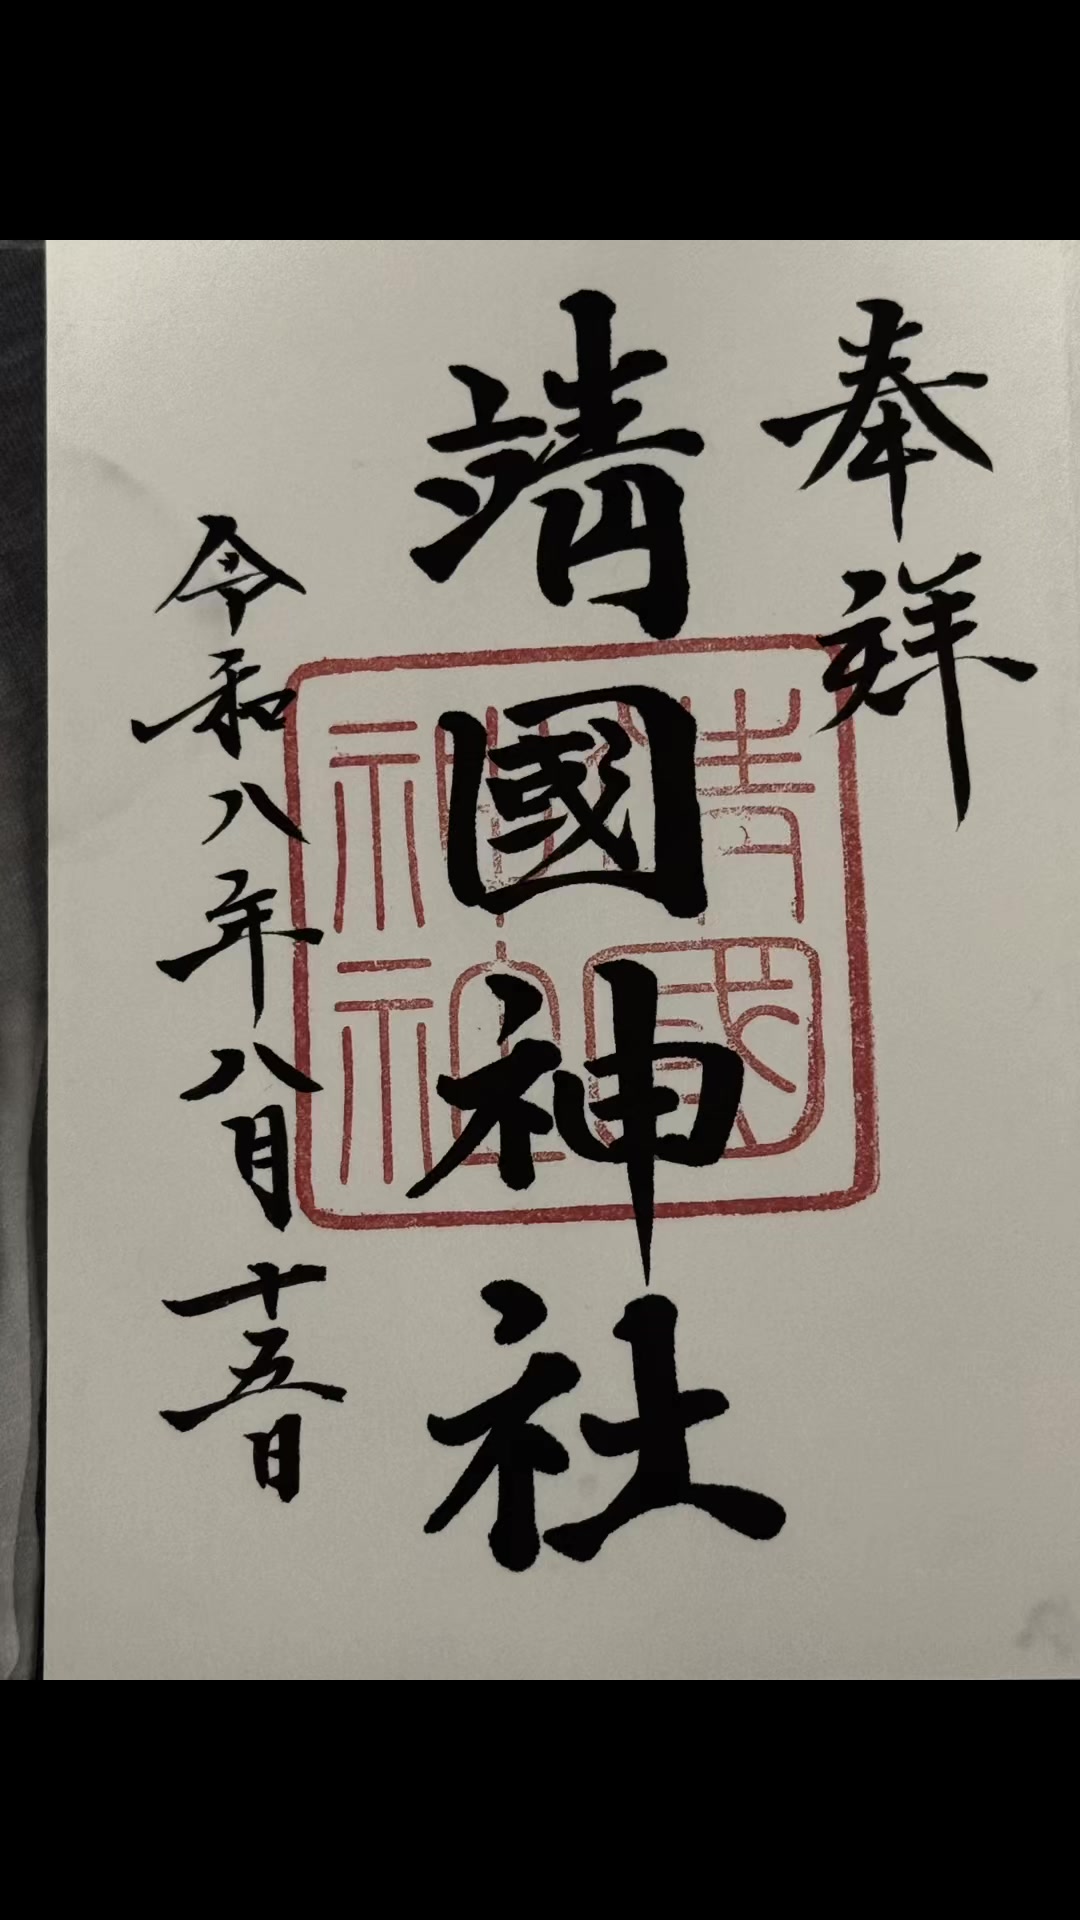 奉祥
靖國神社
令和八年八月十五日
靖國
神社